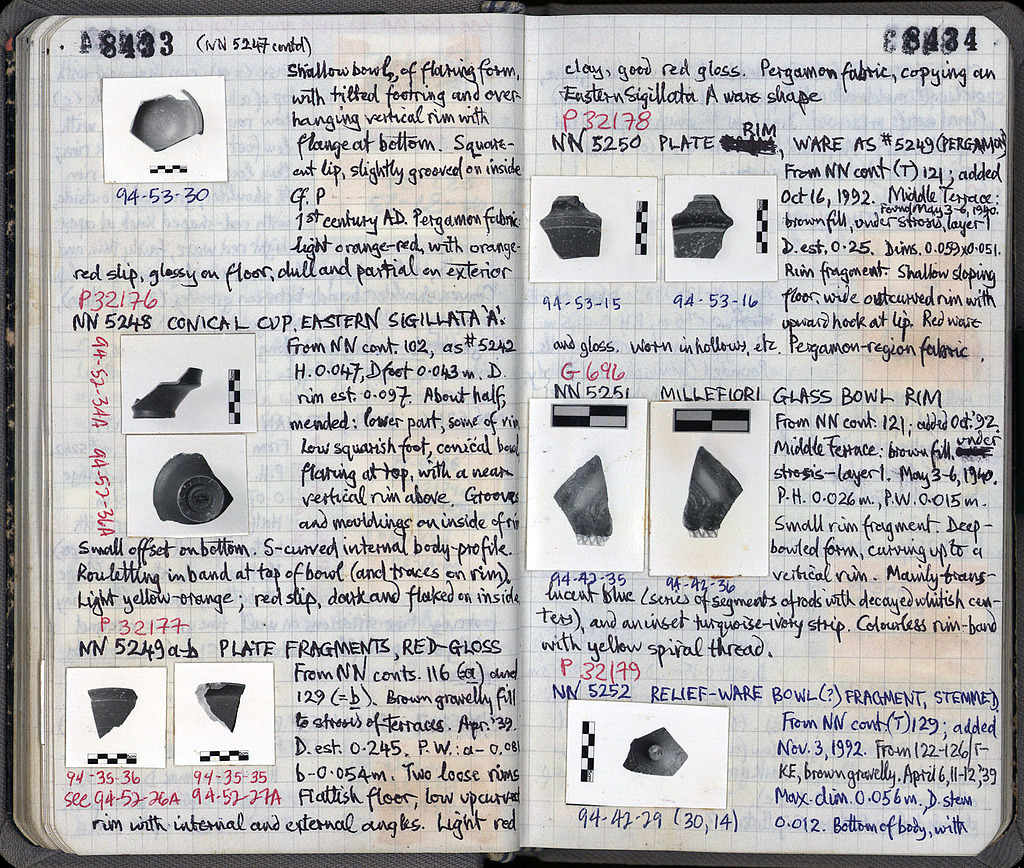 A 8433 (NN 5247 contd)
Shallow bowl, of flaring form,
with tilted footring and over-
hanging vertical rim with
flange at bottom. Square-
cut lip, slightly grooved on inside
Cf. P
94-53-30
1st century AD. Pergamon fabric:
light orange-red, with orange-
red slip, glossy on floor, dull and partial on exterior
P 32176
NN 5248 CONICAL CUP, EASTERN SIGILLATA 'A'.
From NN cont. 102, as #5242
H. 0.047, D foot 0.043 m. D.
rim est. 0.097. About half,
mended: lower part, some of rim
Low squarish foot, conical bowl
flaring at top, with a near-
vertical rim above. Grooves
and mouldings on inside of rim
94-52-34A
94-52-36A
Small offset on bottom. S-curved internal body-profile.
Rouletting in band at top of bowl (and traces on rim).
Light yellow-orange; red slip, dark and flaked on inside
P 32177
NN 5249 a-b PLATE FRAGMENTS, RED-GLOSS
From NN conts. 116 (a) and
129 (=b). Brown gravelly fill
to strosis of terraces. Apr. '39.
D. est. 0.245. P.W.: a- 0.081
b- 0.054 m. Two loose rims
94-35-36 94-35-35
see 94-52-26A 94-52-27A
Flattish floor, low upcurved
rim with internal and external angles. Light red
8434
clay, good red gloss. Pergamon fabric, copying an
Eastern Sigillata A ware shape
P 32178
NN 5250 PLATE RIM, WARE AS #5249 (PERGAMON)
From NN cont (T) 121; added
Oct 16, 1992. Middle Terrace:
found May 3-6, 1940.
brown fill, under strosis, layer 1
D. est. 0.25. Dims. 0.059 x 0.051.
Rim fragment. Shallow sloping
floor, wide outcurved rim with
upward hook at lip. Red ware
94-53-15 94-53-16
and gloss. Worn in hollows, etc. Pergamon-region fabric.
G 696
NN 5251 MILLEFIORI GLASS BOWL RIM
From NN cont. 121; added Oct '92.
Middle Terrace: brown fill, under
strosis - layer 1. May 3-6, 1940.
P.H. 0.026 m, P.W. 0.015 m.
Small rim fragment. Deep-
bowled form, curving up to a
vertical rim. Mainly trans-
94-42-35 94-42-36
lucent blue (series of segments of rods with decayed whitish cen-
ters), and an inset turquoise-ivory strip. Colourless rim-band
with yellow spiral thread.
P 32179
NN 5252 RELIEF-WARE BOWL (?) FRAGMENT, STEMMED
From NN cont. (T) 129; added
Nov. 3, 1992. From 122-126/Γ-
KE, brown gravelly. April 6, 11-12, '39
Max. dim. 0.056 m. D. stem
0.012. Bottom of body, with
94-42-29 (30, 14)